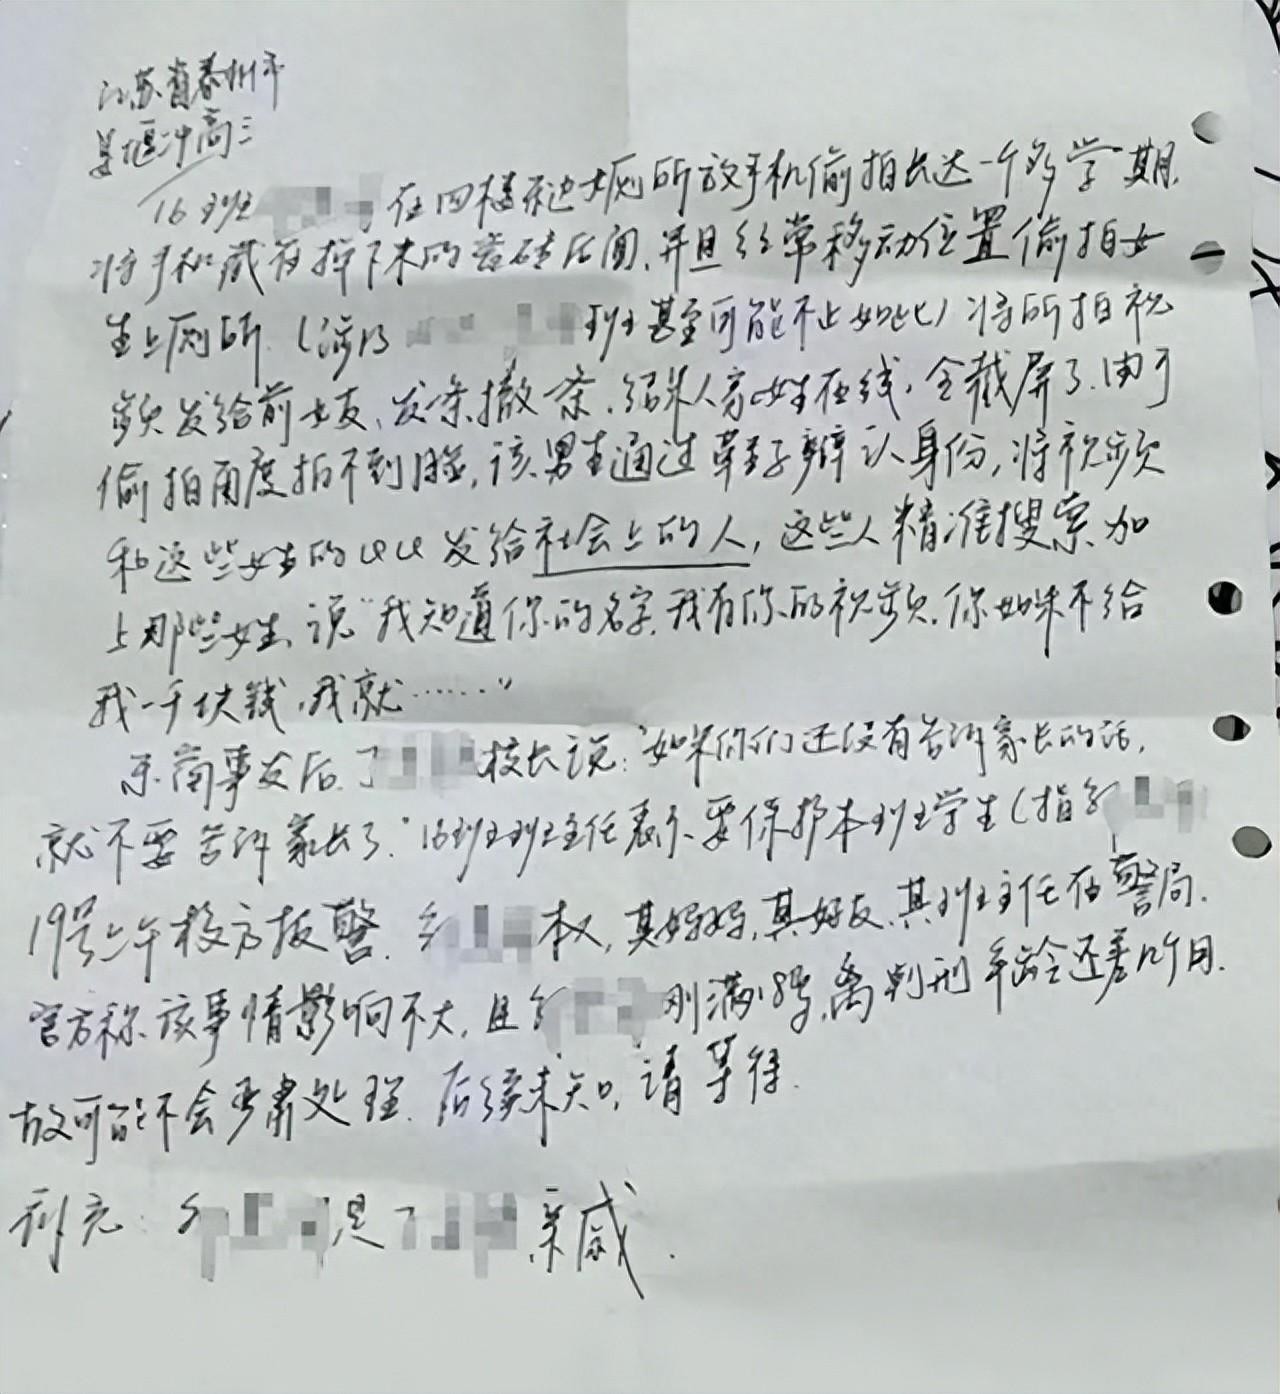 江苏省泰州市
姜堰二中高三
16班 在四楼和七楼厕所放手机偷拍长达一个多学期.
将手机藏在掉下来的瓷砖后面,并且经常移动位置偷拍女
生上厕所.(涉及 班甚至可能不止如此)将所拍视
频发给前女友,发一条撤一条,结果人家女生在线,全截屏了.由于
偷拍角度拍不到脸,该男生通过鞋子辨认身份,将视频
和这些女生的QQ发给社会上的人,这些人精准搜索加
上那些女生,说“我知道你的名字,我有你的视频,你如果不给
我一千块钱,我就……”
东窗事发后,丁 校长说:“如果你们还没有告诉家长的话,
就不要告诉家长了.”16班班主任表示要保护本班学生(指
19号上午校方报警. 本人,其妈妈,其好友,其班主任在警局.
官方称该事情影响不大,且 刚满18岁,离判刑年龄还差几个月.
故可能不会严肃处理.后续未知,请等待.
补充: 是丁 亲戚.